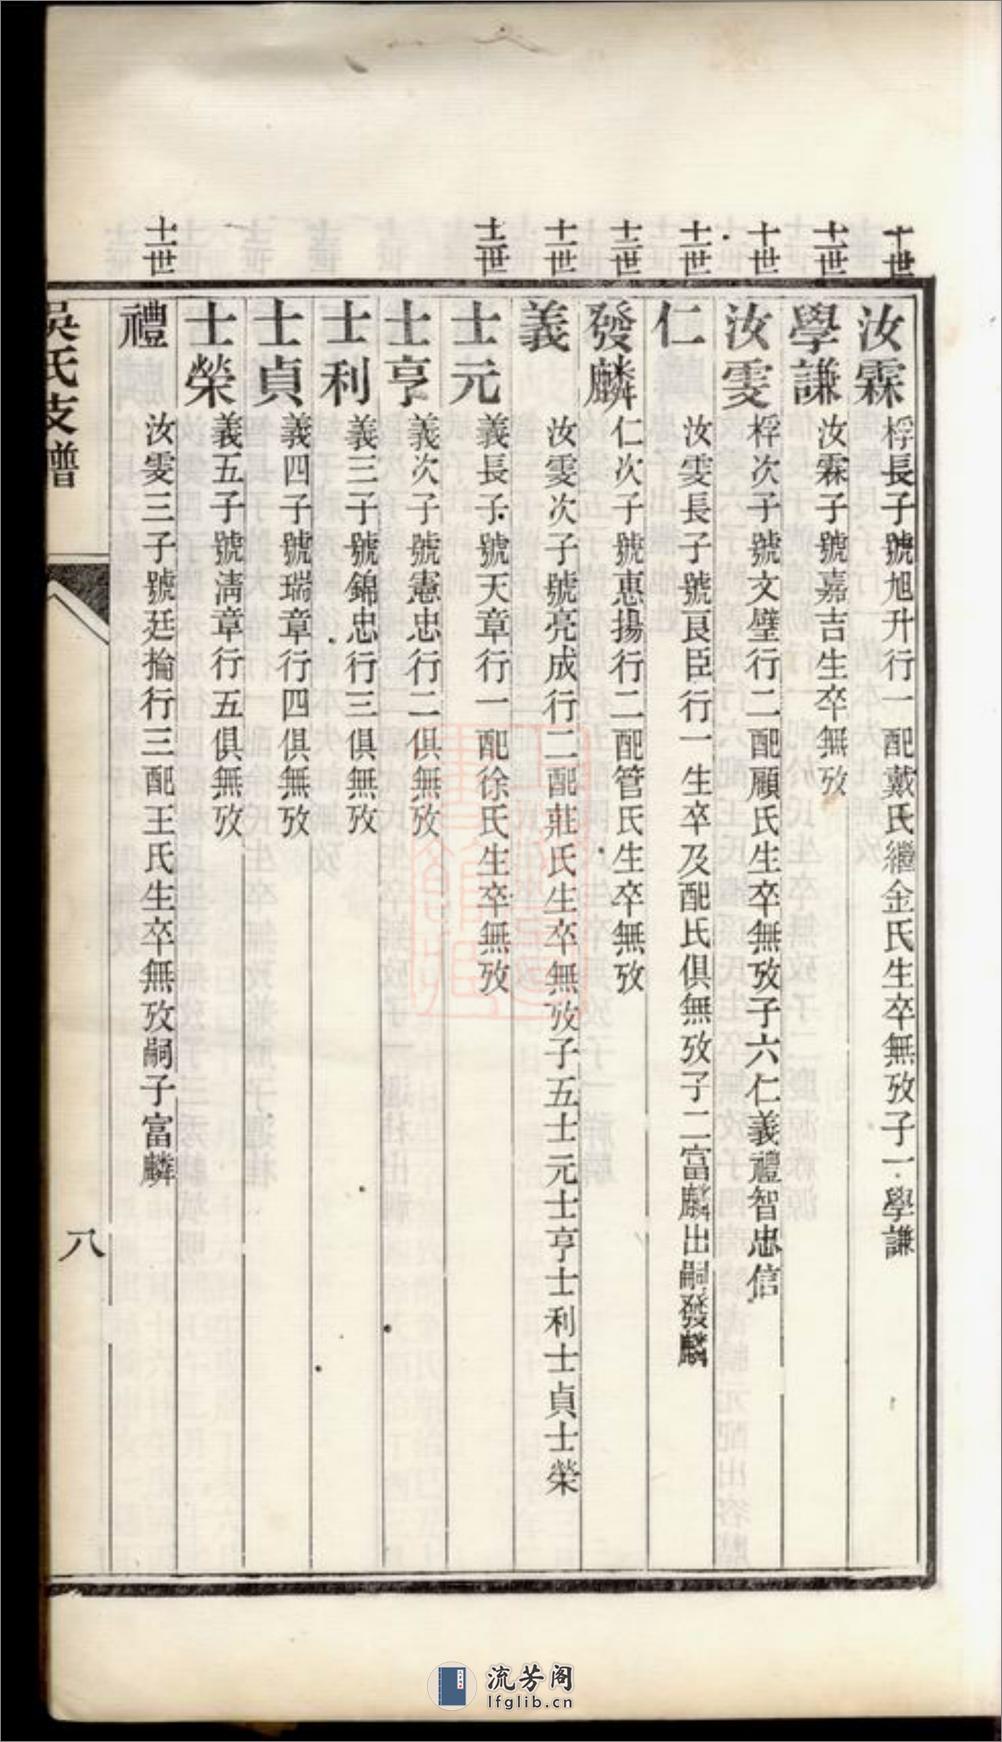 十世
汝霖 桴長子號旭升行一配戴氏繼金氏生卒無攷子一學謙
十一世
學謙 汝霖子號嘉吉生卒無攷
十世
汝雯 桴次子號文璧行二配顧氏生卒無攷子六仁義禮智忠信
十一世
仁 汝雯長子號良臣行一生卒及配氏俱無攷子二富麟出嗣發麟
十二世
發麟 仁次子號惠揚行二配管氏生卒無攷
十一世
義 汝雯次子號亮成行二配莊氏生卒無攷子五士元士亨士利士貞士榮
十二世
士元 義長子號天章行一配徐氏生卒無攷
士亨 義次子號憲忠行二俱無攷
士利 義三子號錦忠行三俱無攷
士貞 義四子號瑞章行四俱無攷
士榮 義五子號清章行五俱無攷
十一世
禮 汝雯三子號廷掄行三配王氏生卒無攷嗣子富麟
吳氏支譜
八
流芳阁
lfglib.cn